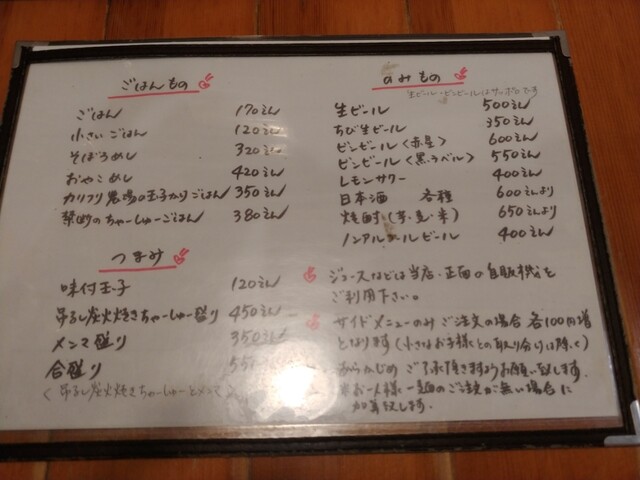 ごはんもの
ごはん 170えん
小さいごはん 120えん
そぼろめし 320えん
おやこめし 420えん
カリフリ農場の玉子かけごはん 350えん
禁断のちゃーしゅーごはん 380えん
つまみ
味付玉子 120えん
吊るし炭火焼きちゃーしゅー盛り 450えん
メンマ盛り 350えん
合盛り
く 吊るし炭火焼きちゃーしゅーとメンマ
のみもの
生ビール・ビンビールはサッポロです
生ビール 500えん
ちび生ビール 350えん
ビンビール〈赤星〉 600えん
ビンビール〈黒ラベル〉 550えん
レモンサワー 400えん
日本酒 各種 600えんより
焼酎(芋・麦・米) 650えんより
ノンアルコールビール 400えん
ジュースなどは当店・正面の自販機を
ご利用下さい。
サイドメニューのみご注文の場合各100円増
となります(小さなお子様との取り分けは除く)
あらかじめご了承頂きますようお願い致します。
※お一人様一麺のご注文が無い場合に
加算致します。